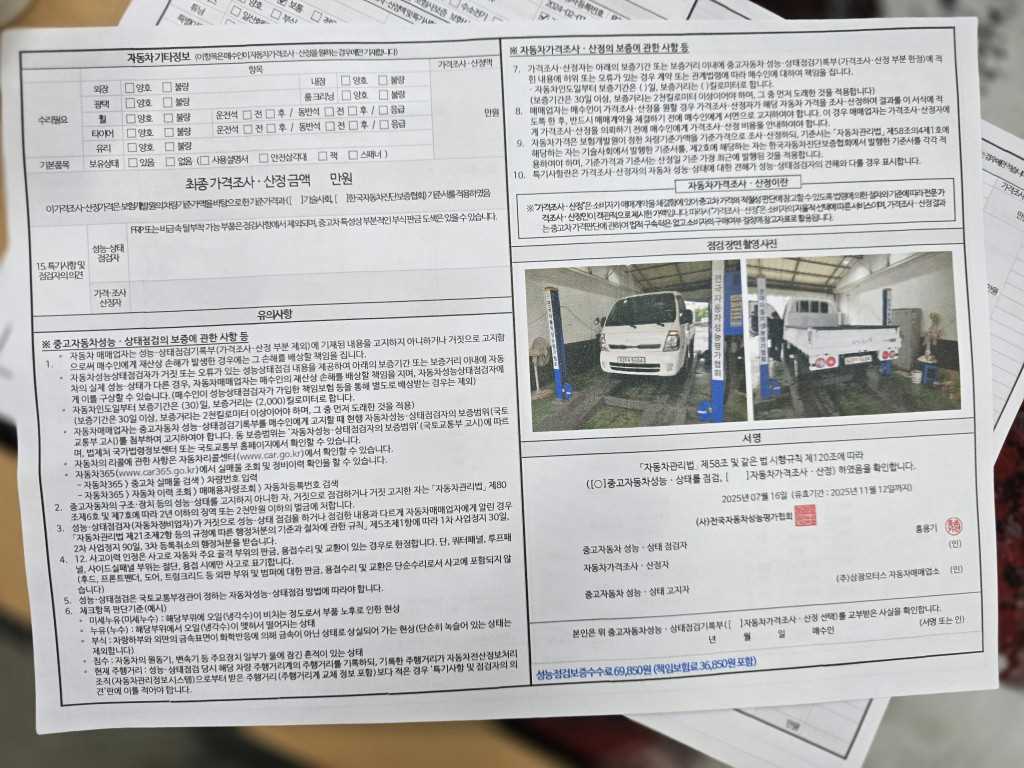 자동차 기타정보 (이 항목은 매수인이 자동차가격조사·산정을 원하는 경우에만 기재합니다)
항목
가격조사·산정액
수리필요
외장 □양호 □불량 내장 □양호 □불량
광택 □양호 □불량 룸크리닝 □양호 □불량
휠 □양호 □불량 운전석 □전 □후 / 동반석 □전 □후 / □응급
타이어 □양호 □불량 운전석 □전 □후 / 동반석 □전 □후 / □응급
유리 □양호 □불량
만원
기본품목 보유상태 □있음 □없음 (□사용설명서 □안전삼각대 □잭 □스패너)
최종 가격조사·산정 금액 만원
이 가격조사·산정가격은 보험개발원의 차량기준가액을 바탕으로 한 기준가격과 ([ ]기술사회, [ ]한국자동차진단보증협회) 기준서를 적용하였음
15. 특기사항 및 점검자의 의견
성능·상태 점검자
FRP 또는 비금속 탈부착 가능 부품은 점검사항에서 제외되며, 중고차 특성상 부분적인 부식 판금 도색은 있을 수 있습니다.
가격·조사 산정자
유의사항
※ 중고자동차성능·상태점검의 보증에 관한 사항 등
1. ◦ 자동차 매매업자는 성능·상태점검기록부(가격조사·산정 부분 제외)에 기재된 내용을 고지하지 아니하거나 거짓으로 고지함
으로써 매수인에게 재산상 손해가 발생한 경우에는 그 손해를 배상할 책임을 집니다.
◦ 자동차성능상태점검자가 거짓 또는 오류가 있는 성능상태점검 내용을 제공하여 아래의 보증기간 또는 보증거리 이내에 자동
차의 실제 성능·상태가 다른 경우, 자동차매매업자는 매수인의 재산상 손해를 배상할 책임을 지며, 자동차성능상태점검자에
게 이를 구상할 수 있습니다. (매수인이 성능상태점검자가 가입한 책임보험 등을 통해 별도로 배상받는 경우는 제외)
◦ 자동차인도일부터 보증기간은 (30)일, 보증거리는 (2,000)킬로미터로 합니다.
(보증기간은 30일 이상, 보증거리는 2천킬로미터 이상이어야 하며, 그 중 먼저 도래한 것을 적용)
◦ 자동차매매업자는 중고자동차 성능·상태점검기록부를 매수인에게 고지할 때 현행 자동차성능·상태점검자의 보증범위(국토
교통부 고시)를 첨부하여 고지하여야 합니다. 동 보증범위는 '자동차성능·상태점검자의 보증범위' (국토교통부 고시)에 따르
며, 법제처 국가법령정보센터 또는 국토교통부 홈페이지에서 확인할 수 있습니다.
◦ 자동차의 리콜에 관한 사항은 자동차리콜센터(www.car.go.kr)에서 확인할 수 있습니다.
◦ 자동차365(www.car365.go.kr)에서 실매물 조회 및 정비이력 확인을 할 수 있습니다.
- 자동차365 〉 중고차 실매물 검색 〉 차량번호 입력
- 자동차365 〉 자동차 이력 조회 〉 매매용차량조회 〉 자동차등록번호 검색
2. 중고자동차의 구조·장치 등의 성능·상태를 고지하지 아니한 자, 거짓으로 점검하거나 거짓 고지한 자는 「자동차관리법」 제80
조제6호 및 제7호에 따라 2년 이하의 징역 또는 2천만원 이하의 벌금에 처합니다.
3. 성능·상태점검자(자동차정비업자)가 거짓으로 성능·상태 점검을 하거나 점검한 내용과 다르게 자동차매매업자에게 알린 경우
「자동차관리법 제21조제2항 등의 규정에 따른 행정처분의 기준과 절차에 관한 규칙」 제5조제1항에 따라 1차 사업정지 30일,
2차 사업정지 90일, 3차 등록취소의 행정처분을 받습니다.
4. 12. 사고이력 인정은 사고로 자동차 주요 골격 부위의 판금, 용접수리 및 교환이 있는 경우로 한정합니다. 단, 쿼터패널, 루프패
널, 사이드실패널 부위는 절단, 용접 시에만 사고로 표기합니다.
(후드, 프론트펜더, 도어, 트렁크리드 등 외판 부위 및 범퍼에 대한 판금, 용접수리 및 교환은 단순수리로서 사고에 포함되지 않
습니다)
5. 성능·상태점검은 국토교통부장관이 정하는 자동차성능·상태점검 방법에 따라야 합니다.
6. 체크항목 판단기준(예시)
◦ 미세누유(미세누수) : 해당부위에 오일(냉각수)이 비치는 정도로서 부품 노후로 인한 현상
◦ 누유(누수) : 해당부위에서 오일(냉각수)이 맺혀서 떨어지는 상태
◦ 부식 : 차량하부와 외판의 금속표면이 화학반응에 의해 금속이 아닌 상태로 상실되어 가는 현상(단순히 녹슬어 있는 상태는
제외합니다)
◦ 침수 : 자동차의 원동기, 변속기 등 주요장치 일부가 물에 잠긴 흔적이 있는 상태
◦ 현재 주행거리 : 성능·상태점검 당시 해당 차량 주행거리계의 주행거리를 기록하되, 기록한 주행거리가 자동차전산정보처리
조직(자동차관리정보시스템)으로부터 받은 주행거리(주행거리계 교체 정보 포함)보다 적은 경우 '특기사항 및 점검자의 의
견'란에 이를 적어야 합니다.
※ 자동차가격조사·산정의 보증에 관한 사항 등
7. 가격조사·산정자는 아래의 보증기간 또는 보증거리 이내에 중고자동차 성능·상태점검기록부(가격조사·산정 부분 한정)에 적
힌 내용에 허위 또는 오류가 있는 경우 계약 또는 관계법령에 따라 매수인에 대하여 책임을 집니다.
· 자동차인도일부터 보증기간은 ( )일, 보증거리는 ( )킬로미터로 합니다.
(보증기간은 30일 이상, 보증거리는 2천킬로미터 이상이어야 하며, 그 중 먼저 도래한 것을 적용합니다)
8. 매매업자는 매수인이 가격조사·산정을 원할 경우 가격조사·산정자가 해당 자동차 가격을 조사·산정하여 결과를 이 서식에 적
도록 한 후, 반드시 매매계약을 체결하기 전에 매수인에게 서면으로 고지하여야 합니다. 이 경우 매매업자는 가격조사·산정자에
게 가격조사·산정을 의뢰하기 전에 매수인에게 가격조사·산정 비용을 안내하여야 합니다.
9. 자동차가격은 보험개발원이 정한 차량기준가액을 기준가격으로 조사·산정하되, 기준서는 「자동차관리법」 제58조의4제1호에
해당하는 자는 기술사회에서 발행한 기준서를, 제2호에 해당하는 자는 한국자동차진단보증협회에서 발행한 기준서를 각각 적
용하여야 하며, 기준가격과 기준서는 산정일 기준 가장 최근에 발행된 것을 적용합니다.
10. 특기사항란은 가격조사·산정자의 자동차 성능·상태에 대한 견해가 성능·상태점검자의 견해와 다를 경우 표시합니다.
자동차가격조사·산정이란
※ "가격조사·산정"은 소비자가 매매계약을 체결함에 있어 중고차 가격의 적절성 판단에 참고할 수 있도록 법령에 의한 절차와 기준에 따라 전문가
격조사·산정인이 객관적으로 제시한 가액입니다. 따라서 "가격조사·산정"은 소비자의 자율적 선택에 따른 서비스이며, 가격조사·산정 결과
는 중고차 가격판단에 관하여 법적 구속력은 없고 소비자의 구매여부 결정에 참고자료로 활용됩니다.
점검 장면 촬영 사진
전국자동차성능평가협회
서명
「자동차관리법」 제58조 및 같은 법 시행규칙 제120조에 따라
([○]중고자동차성능·상태를 점검, [ ]자동차가격조사·산정) 하였음을 확인합니다.
2025년 07월 16일 (유효기간 : 2025년 11월 12일까지)
(사)전국자동차성능평가협회
중고자동차 성능·상태 점검자 홍용기 (인)
자동차가격조사·산정자
중고자동차 성능·상태 고지자 (주)삼정모터스 자동차매매업소 (인)
본인은 위 중고자동차성능·상태점검기록부([ ]자동차가격조사·산정 선택)를 교부받은 사실을 확인합니다.
년 월 일 매수인 (서명 또는 인)
성능점검보증수수료 69,850원 (책임보험료 36,850원 포함)